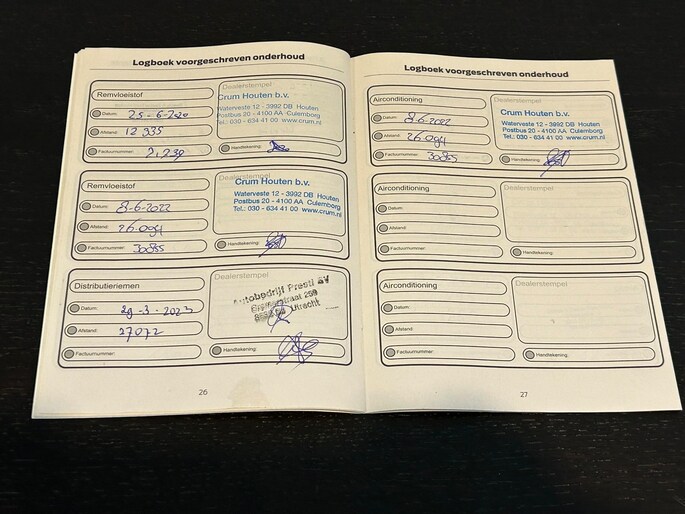 Logboek voorgeschreven onderhoud
Remvloeistof
Dealerstempel
Crum Houten b.v.
Waterveste 12 - 3992 DB Houten
Postbus 20 - 4100 AA Culemborg
Tel.: 030 - 634 41 00 www.crum.nl
Datum: 25-6-2020
Afstand: 12 335
Factuurnummer:
Handtekening:
Remvloeistof
Crum Houten b.v.
Waterveste 12 - 3992 DB Houten
Postbus 20 - 4100 AA Culemborg
Tel.: 030 - 634 41 00 www.crum.nl
Datum: 8-6-2022
Afstand: 26.094
Factuurnummer: 30855
Handtekening:
Distributieriemen
Dealerstempel
Autobedrijf Presti BV
Utrecht
Datum: 29-3-2023
Afstand: 27072
Factuurnummer:
Handtekening:
26
Logboek voorgeschreven onderhoud
Airconditioning
Dealerstempel
Crum Houten b.v.
Waterveste 12 - 3992 DB Houten
Postbus 20 - 4100 AA Culemborg
Tel.: 030 - 634 41 00 www.crum.nl
Datum: 8-6-2022
Afstand: 26.094
Factuurnummer: 30855
Handtekening:
Airconditioning
Dealerstempel
Datum:
Afstand:
Factuurnummer:
Handtekening:
Airconditioning
Dealerstempel
Datum:
Afstand:
Factuurnummer:
Handtekening:
27